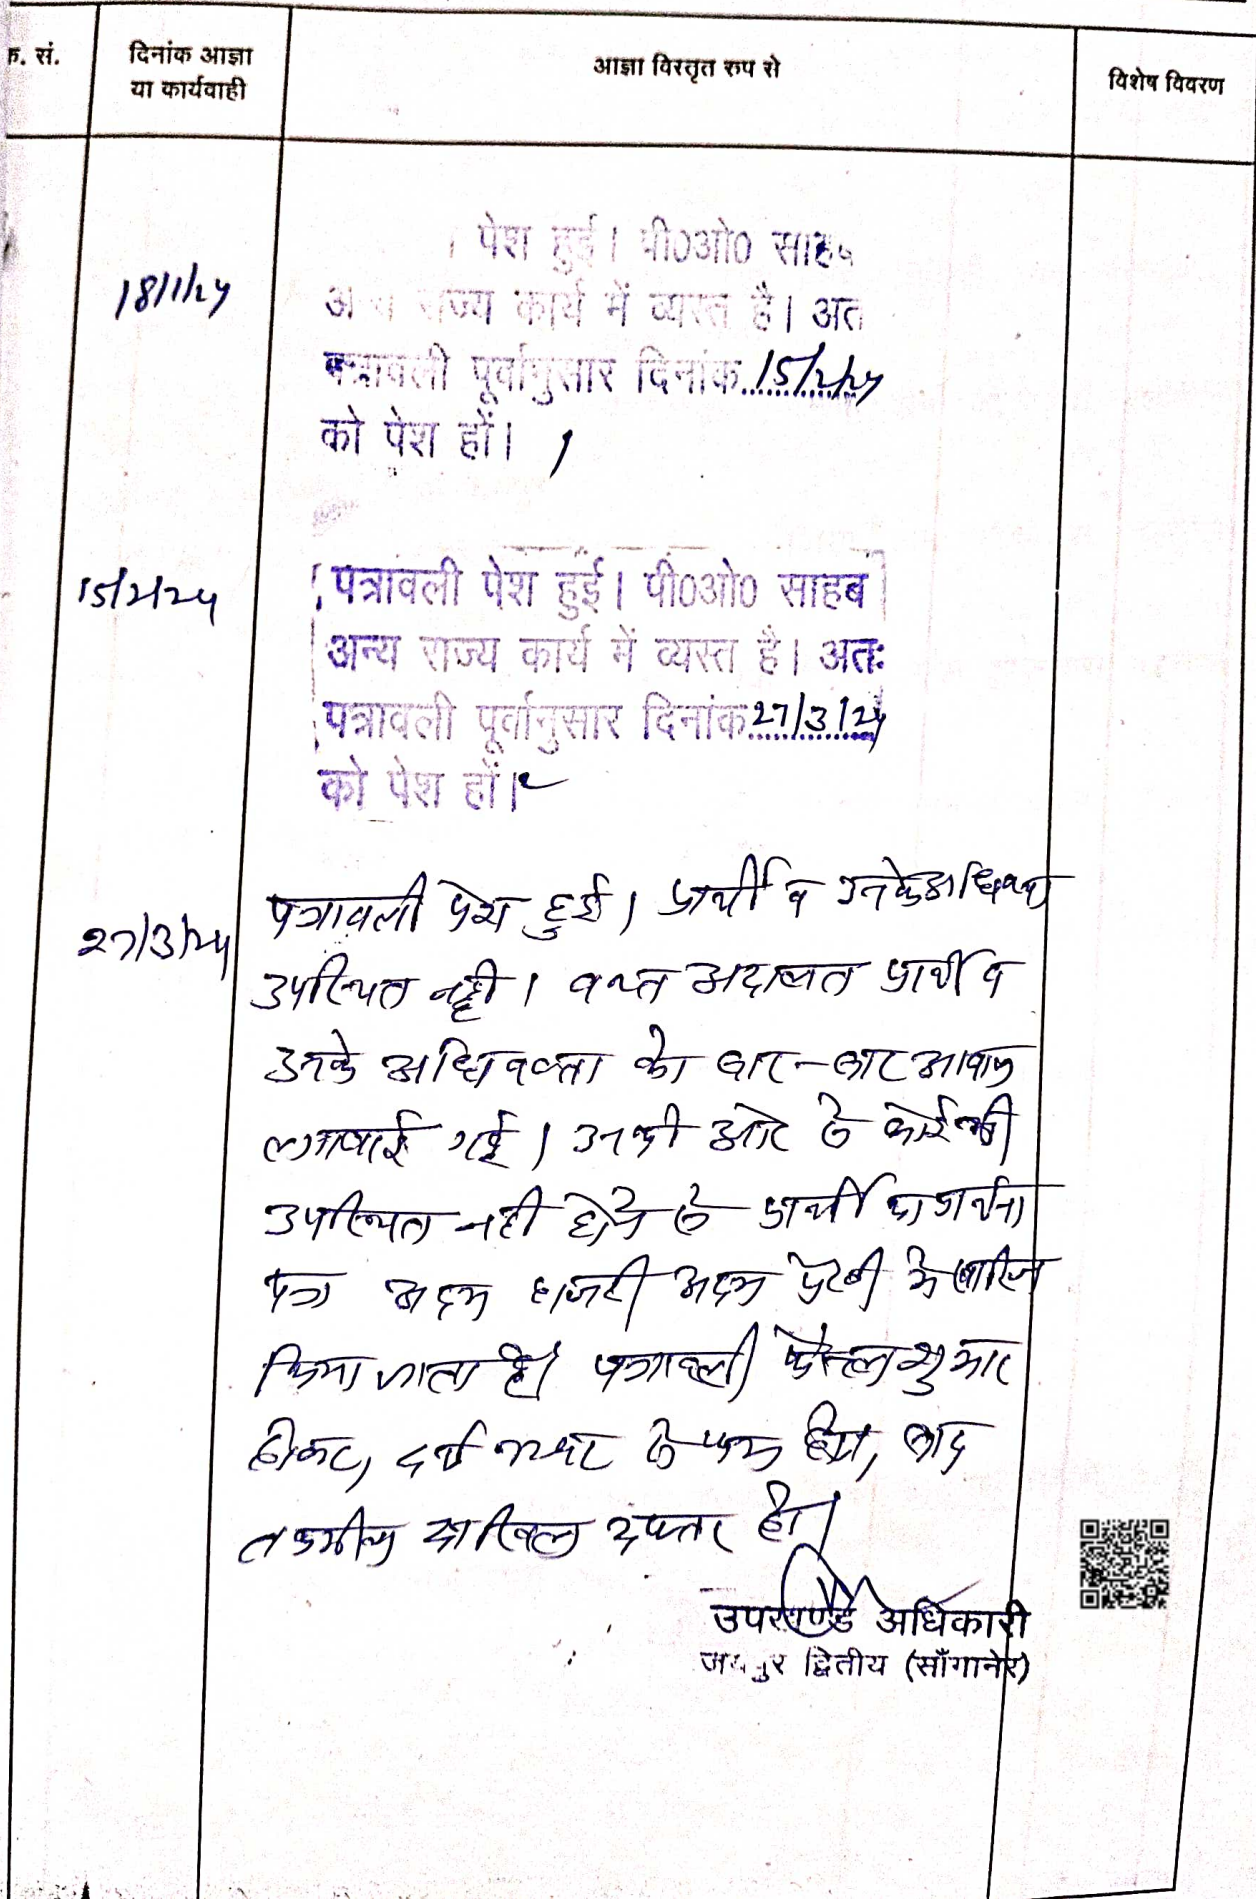 क. सं.
दिनांक आज्ञा
या कार्यवाही
आज्ञा विस्तृत रुप से
विशेष विवरण
18/1/24
। पेश हुई। पी0ओ0 साहब
अन्य राज्य कार्य में व्यस्त है। अत
पत्रावली पूर्वानुसार दिनांक 15/2/24
को पेश हों।
15/2/24
पत्रावली पेश हुई। पी0ओ0 साहब
अन्य राज्य कार्य में व्यस्त है। अतः
पत्रावली पूर्वानुसार दिनांक 27/3/24
को पेश हों।
27/3/24
पत्रावली पेश हुई। प्रार्थी व उनके अधिवक्ता
उपस्थित नही। वक्त अदालत प्रार्थी व
उनके अधिवक्ता को बार-बार आवाज
लगवाई गई। उनकी ओर से कोई भी
उपस्थित नही होने से प्रार्थी का प्रार्थना
पत्र अदम हाजरी अदम पैरवी मे खारिज
किया जाता है। पत्रावली फैसल शुमार
होकर, दर्ज नम्बर से कम होवे, बाद
तकमील दाखिल दफ्तर हो।
उपखण्ड अधिकारी
जयपुर द्वितीय (साँगानेर)